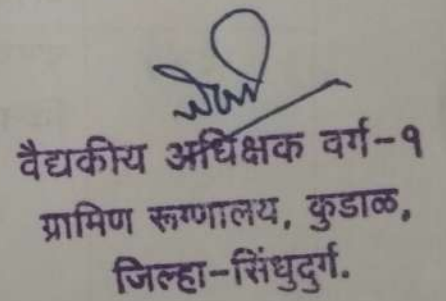 वैद्यकीय अधिक्षक वर्ग-१
ग्रामिण रूग्णालय, कुडाळ,
जिल्हा-सिंधुदुर्ग.